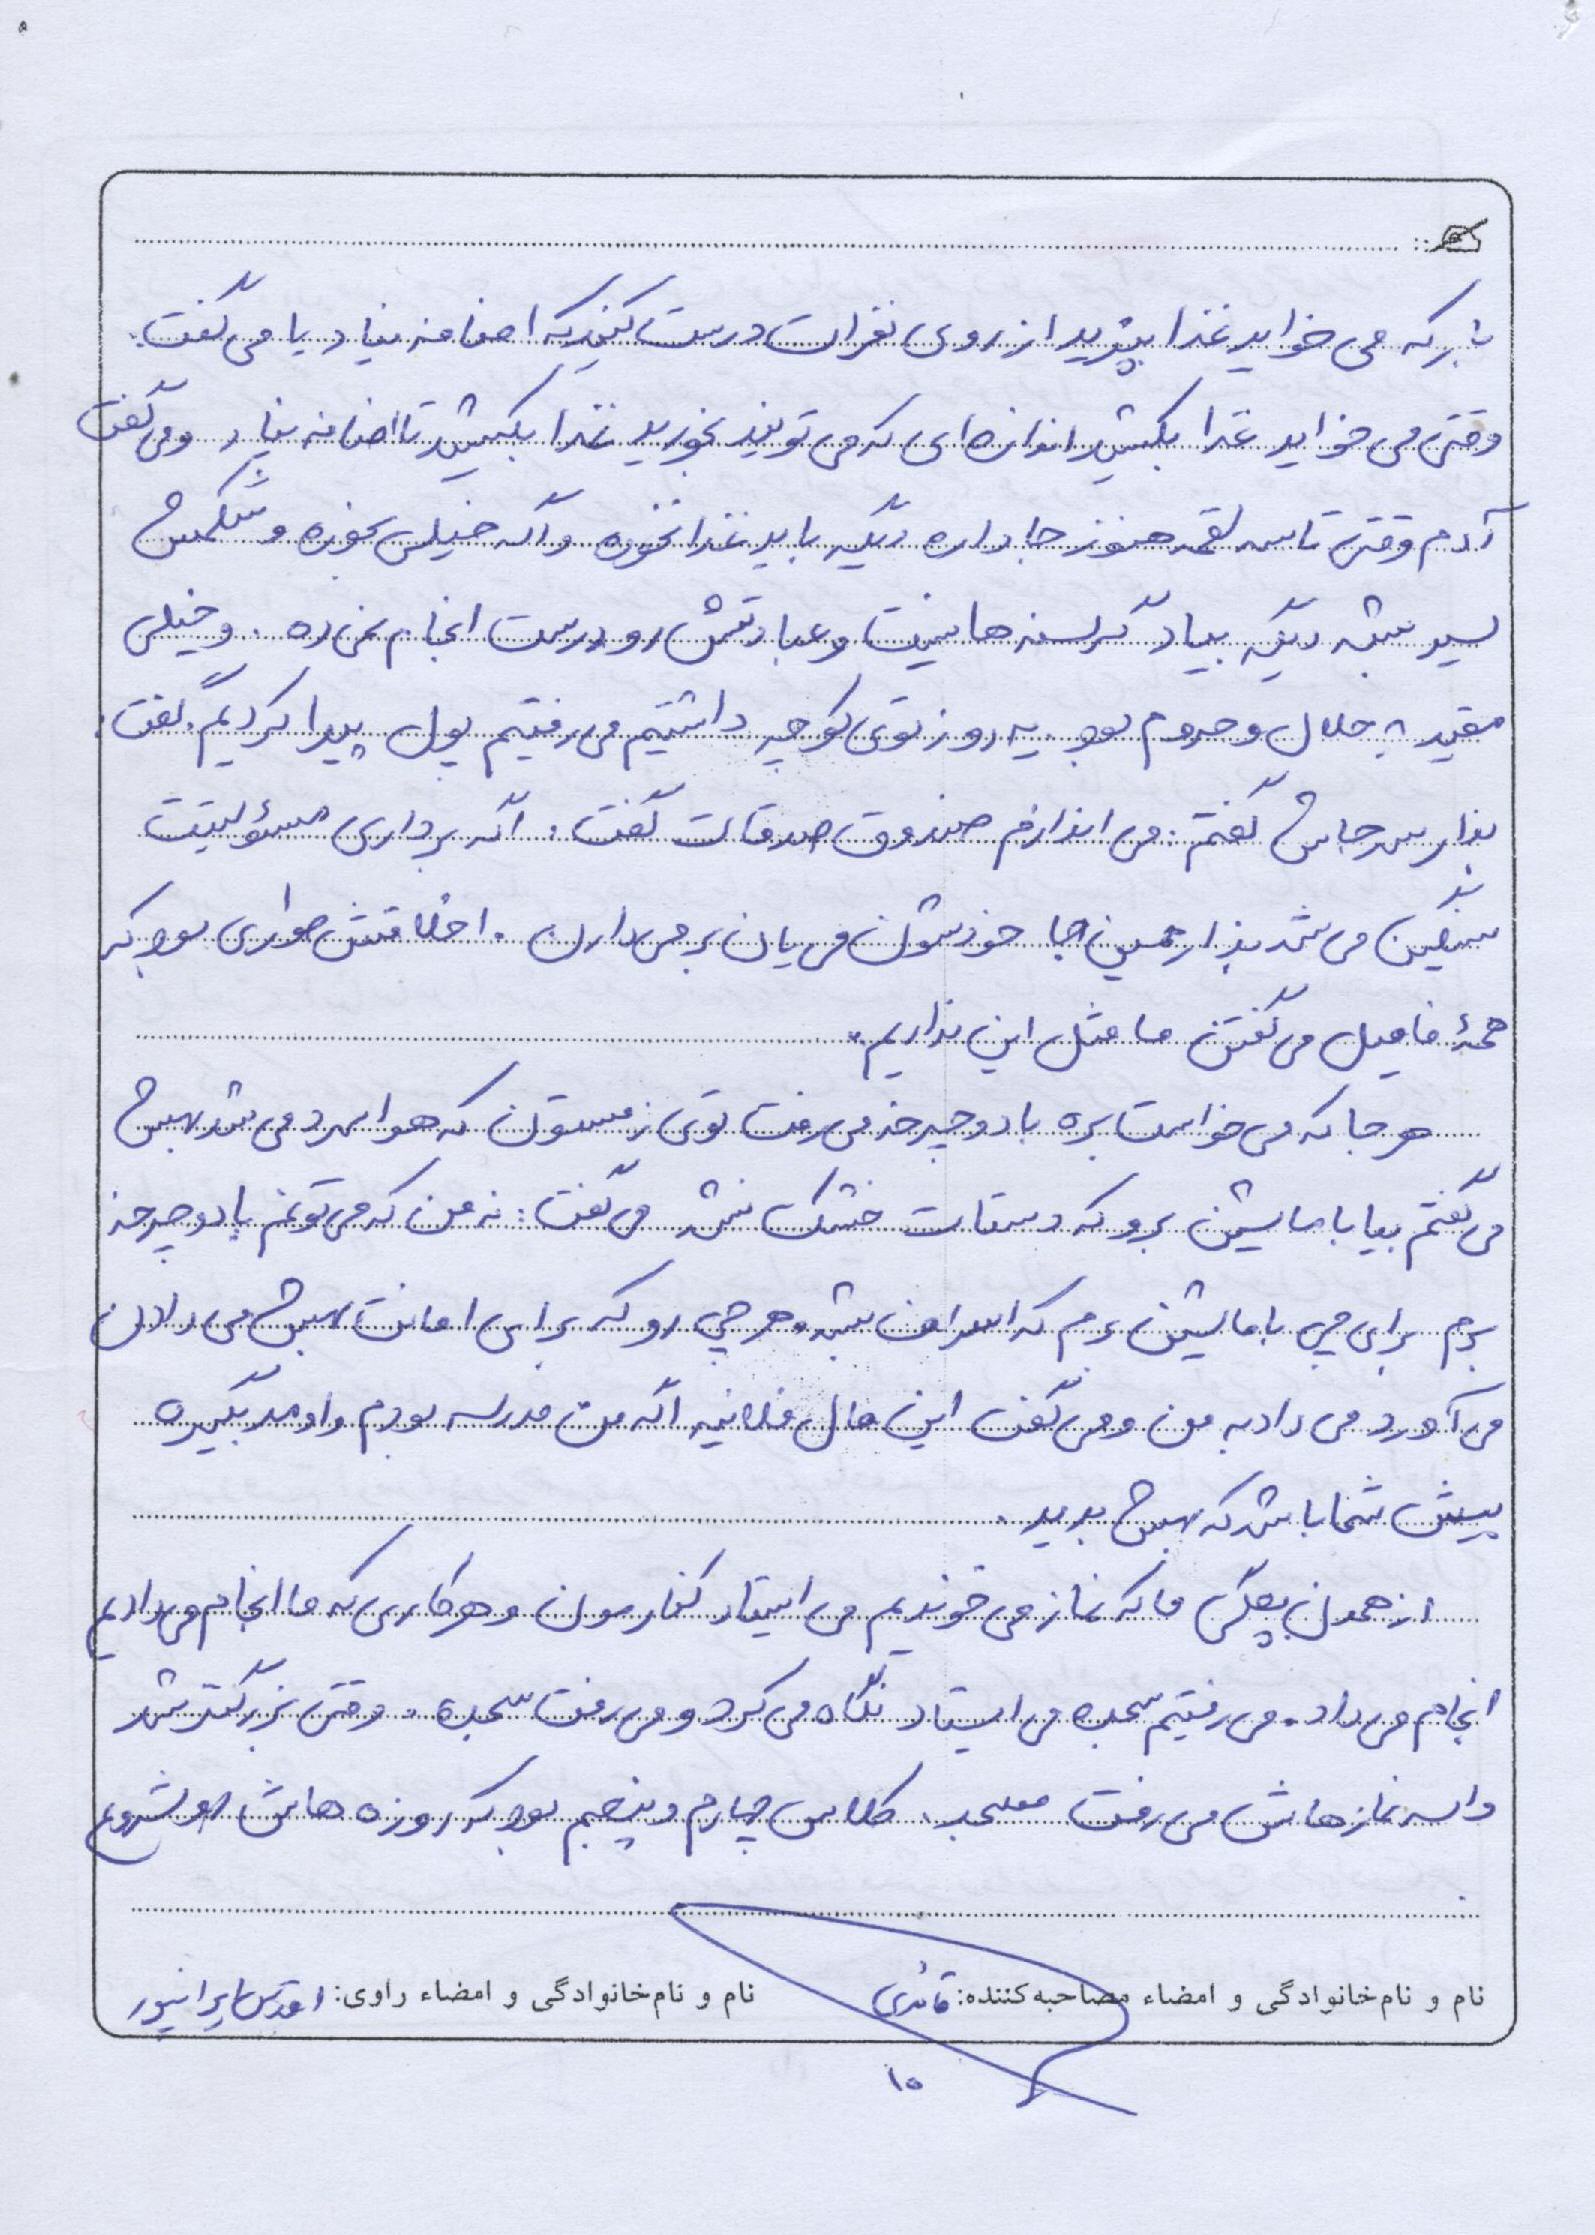 بار که می خواید غذا بپزید از روی نفرات درست کنید که اضافه نیاد یا می گفت:
وقتی می خواید غذا بکشید اندازه ای که می تونید بخورید غذا بکشید تا اضافه نیاد و می گفت
آدم وقتی تا سه لقمه هنوز جا داره دیگه باید غذا نخوره و اگه خیلی بخوره و شکمش
سیر بشه دیگه بیاد گرسنه ها نیفت و عبادتش رو درست انجام نمی ده . و خیلی
مقید به حلال و حروم بود . یه روز توی کوچه داشتیم می رفتیم پول پیدا کردیم گفت:
بذار سر جاش گفتم: می اندازم صندوق صدقات گفت: اگه برداری مسئولیتت
سنگین می شد بذار همین جا خودشون می یان بر می دارن . اخلاقش طوری بود که
همهٔ فامیل می گفتن ما مثل این نداریم.
هر جا که می خواست بره با دوچرخه می رفت توی زمستون که هوا سرد می شد بهش
می گفتم بیا با ماشین برو که دستات خشک نشه می گفت: نه من که می تونم با دوچرخه
برم برای چی با ماشین برم که اسراف بشه. هر چی رو که برای امانت بهش می دادن
می آورد می داد به من و می گفت این مال فلانیه اگه من مدرسه بودم و اومد بگیره
پیش شما باشد که بهش بدید .
از همون بچگی ما که نماز می خوندیم می ایستاد کنارمون و هر کاری که ما انجام می دادیم
انجام می داد. می رفتیم سجده می ایستاد نگاه می کرد و می رفت سجده . وقتی بزرگتر شد
واسه نمازهاش می رفت مسجد. کلاس چهارم و پنجم بود که روزه هاش رو شروع
نام و نام‌خانوادگی و امضاء مصاحبه‌کننده: قائدی
نام و نام‌خانوادگی و امضاء راوی: اقدس ایرانپور
۱۰